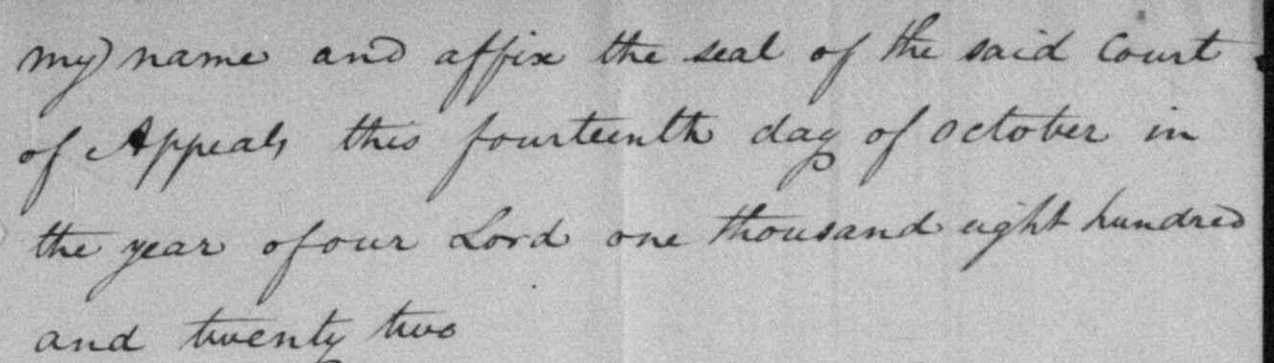 my name and affix the seal of the said Court
of Appeals this fourteenth day of October in
the year of our Lord one thousand eight hundred
and twenty two